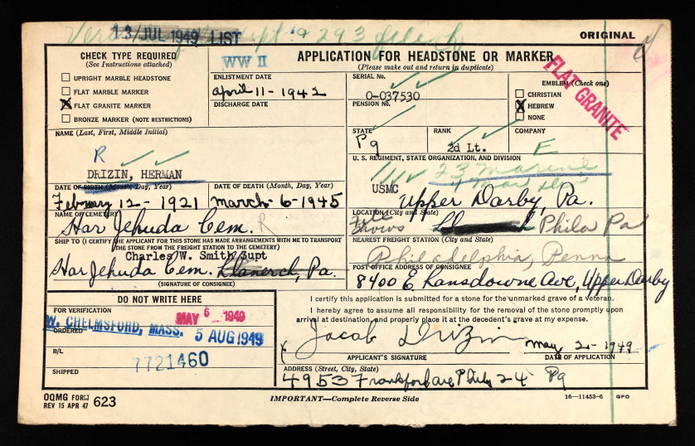 13/JUL 1949 LIST
ORIGINAL
CHECK TYPE REQUIRED
(See Instructions attached)
UPRIGHT MARBLE HEADSTONE
FLAT MARBLE MARKER
X FLAT GRANITE MARKER
BRONZE MARKER (NOTE RESTRICTIONS)
WW II
APPLICATION FOR HEADSTONE OR MARKER
(Please make out and return in duplicate)
ENLISTMENT DATE
April-11-1942
DISCHARGE DATE
SERIAL No.
O-037530
PENSION No.
EMBLEM (Check one)
CHRISTIAN
X HEBREW
NONE
FLAT GRANITE
STATE
Pa
RANK
2d Lt.
COMPANY
E
NAME (Last, First, Middle Initial)
R
DRIZIN, HERMAN
U. S. REGIMENT, STATE ORGANIZATION, AND DIVISION
23 Marines
USMC
DATE OF BIRTH (Month, Day, Year)
February 12-1921
DATE OF DEATH (Month, Day, Year)
March-6-1945
Upper Darby, Pa.
NAME OF CEMETERY
Har Jehuda Cem. R
LOCATION (City and State)
File Shows
Phila Pa
SHIP TO (I CERTIFY THE APPLICANT FOR THIS STONE HAS MADE ARRANGEMENTS WITH ME TO TRANSPORT
THE STONE FROM THE FREIGHT STATION TO THE CEMETERY)
Charles W. Smith Supt
Har Jehuda Cem. Llanerch, Pa.
(SIGNATURE OF CONSIGNEE)
NEAREST FREIGHT STATION (City and State)
Philadelphia, Penna
POST OFFICE ADDRESS OF CONSIGNEE
8400 E Lansdowne Ave, Upper Darby
DO NOT WRITE HERE
FOR VERIFICATION
MAY 6 1949
ORDERED
W. CHELMSFORD, MASS. 5 AUG 1949
B/L
7721460
SHIPPED
I certify this application is submitted for a stone for the unmarked grave of a veteran.
I hereby agree to assume all responsibility for the removal of the stone promptly upon
arrival at destination, and properly place it at the decedent's grave at my expense.
Jacob Drizin
May 2-1949
APPLICANT'S SIGNATURE
DATE OF APPLICATION
ADDRESS (Street, City, State)
4953 Frankford ave Phily 24 Pa
OQMG FORM
REV 15 APR 47 623
IMPORTANT—Complete Reverse Side
16—11453-6 GPO